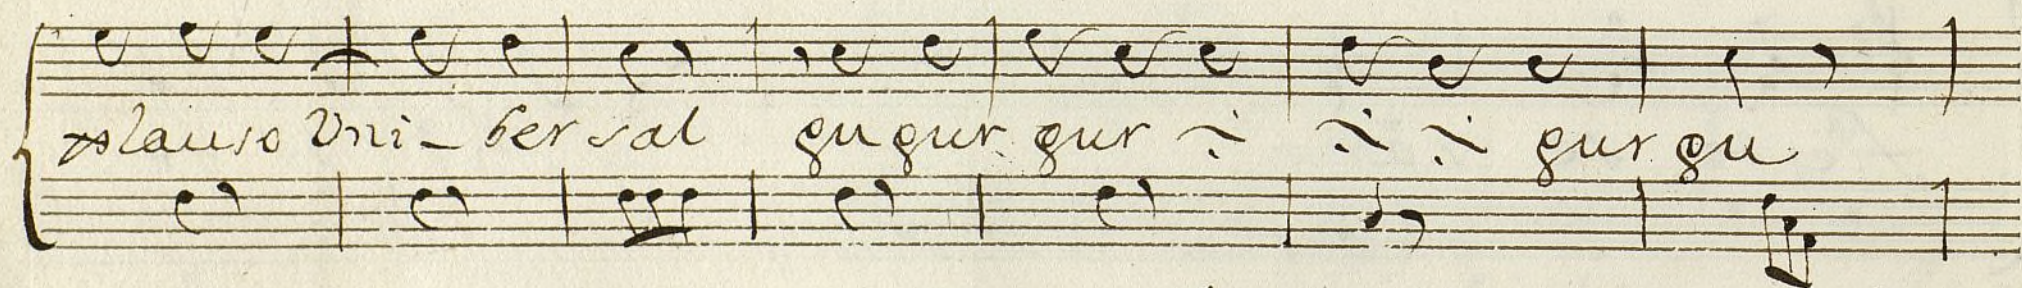 plauso Vni_bersal gu gur gur ⁓ ⁓ ⁓ gur gu